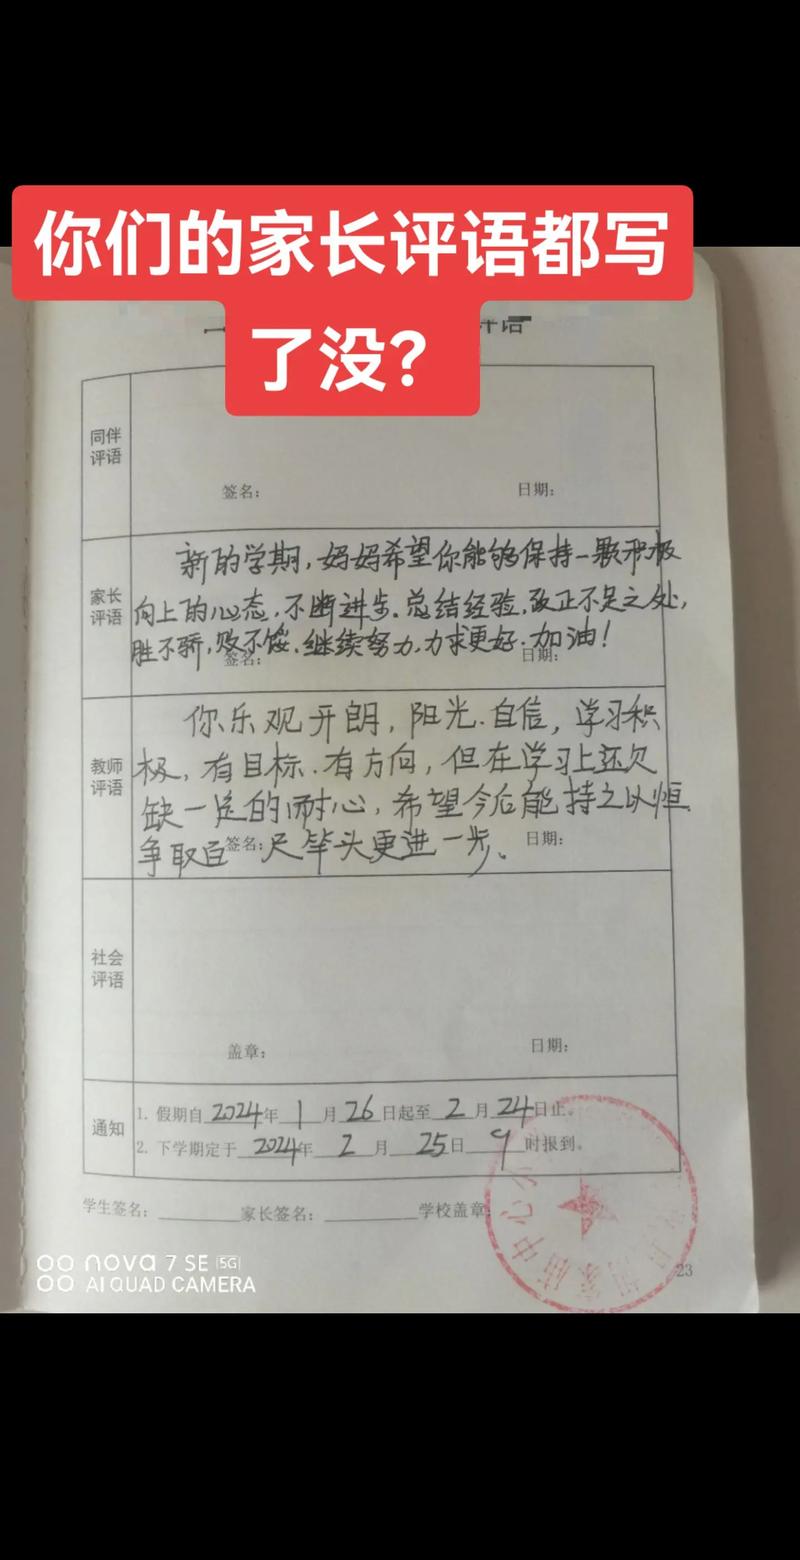 你们的家长评语都写
了没？
评语
同伴
评语
签名：
日期：
家长
评语
新的学期，妈妈希望你能够保持一颗积极
向上的心态，不断进步.总结经验，改正不足之处，
胜不骄，败不馁.继续努力，力求更好.加油！
签名：
日期：
教师
评语
你乐观开朗，阳光.自信，学习积
极，有目标.有方向，但在学习上还欠
缺一定的耐心，希望今后能持之以恒.
争取百尺竿头更进一步。
签名：
日期：
社会
评语
盖章：
日期：
通知
1. 假期自2024年1月26日起至2月24日止。
2. 下学期定于2024年2月25日9时报到。
学生签名：________家长签名：________学校盖章
中心
23
nova 7 SE 5G
AI QUAD CAMERA